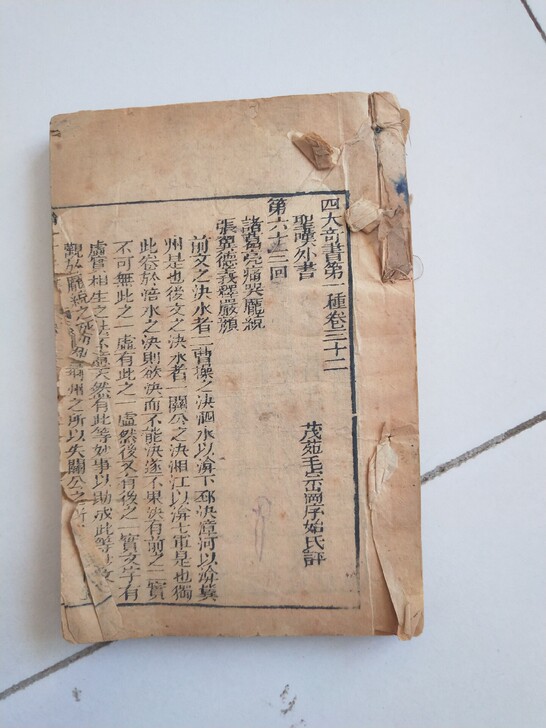 四大奇書第一種卷三十二
聖嘆外書
茂苑毛宗崗序始氏評
第六十三回
諸葛亮痛哭龐統
張翼德義釋嚴顏
前文之決水者二曹操之決泗水以渰下邳決漳河以渰冀
州是也後文之決水者一關公之決湘江以渰七軍是也獨
此卷於涪水之決則欲決而不能決遂不果決有前之二實
不可無此之一虛有此之一虛然後又有後之一實文字有
虛實相生之法不意天然有此等妙事以助成此等妙文
觀於龐統之死荊州之所以失關公之所